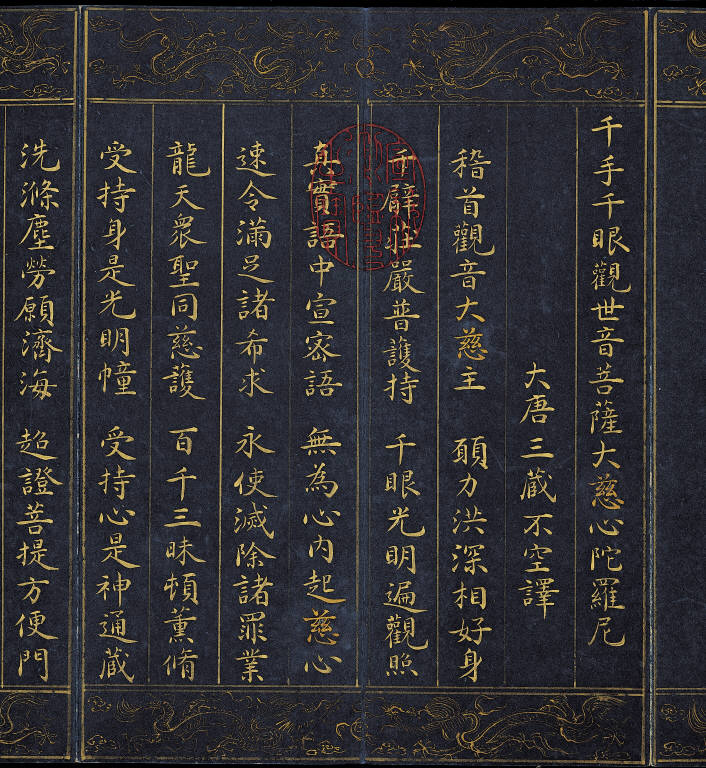 千手千眼觀世音菩薩大慈心陀羅尼
大唐三藏不空譯
稽首觀音大慈主 願力洪深相好身
千臂莊嚴普護持 千眼光明遍觀照
真實語中宣密語 無為心內起慈心
速令滿足諸希求 永使滅除諸罪業
龍天眾聖同慈護 百千三昧頓薰脩
受持身是光明幢 受持心是神通藏
洗滌塵勞願濟海 超證菩提方便門